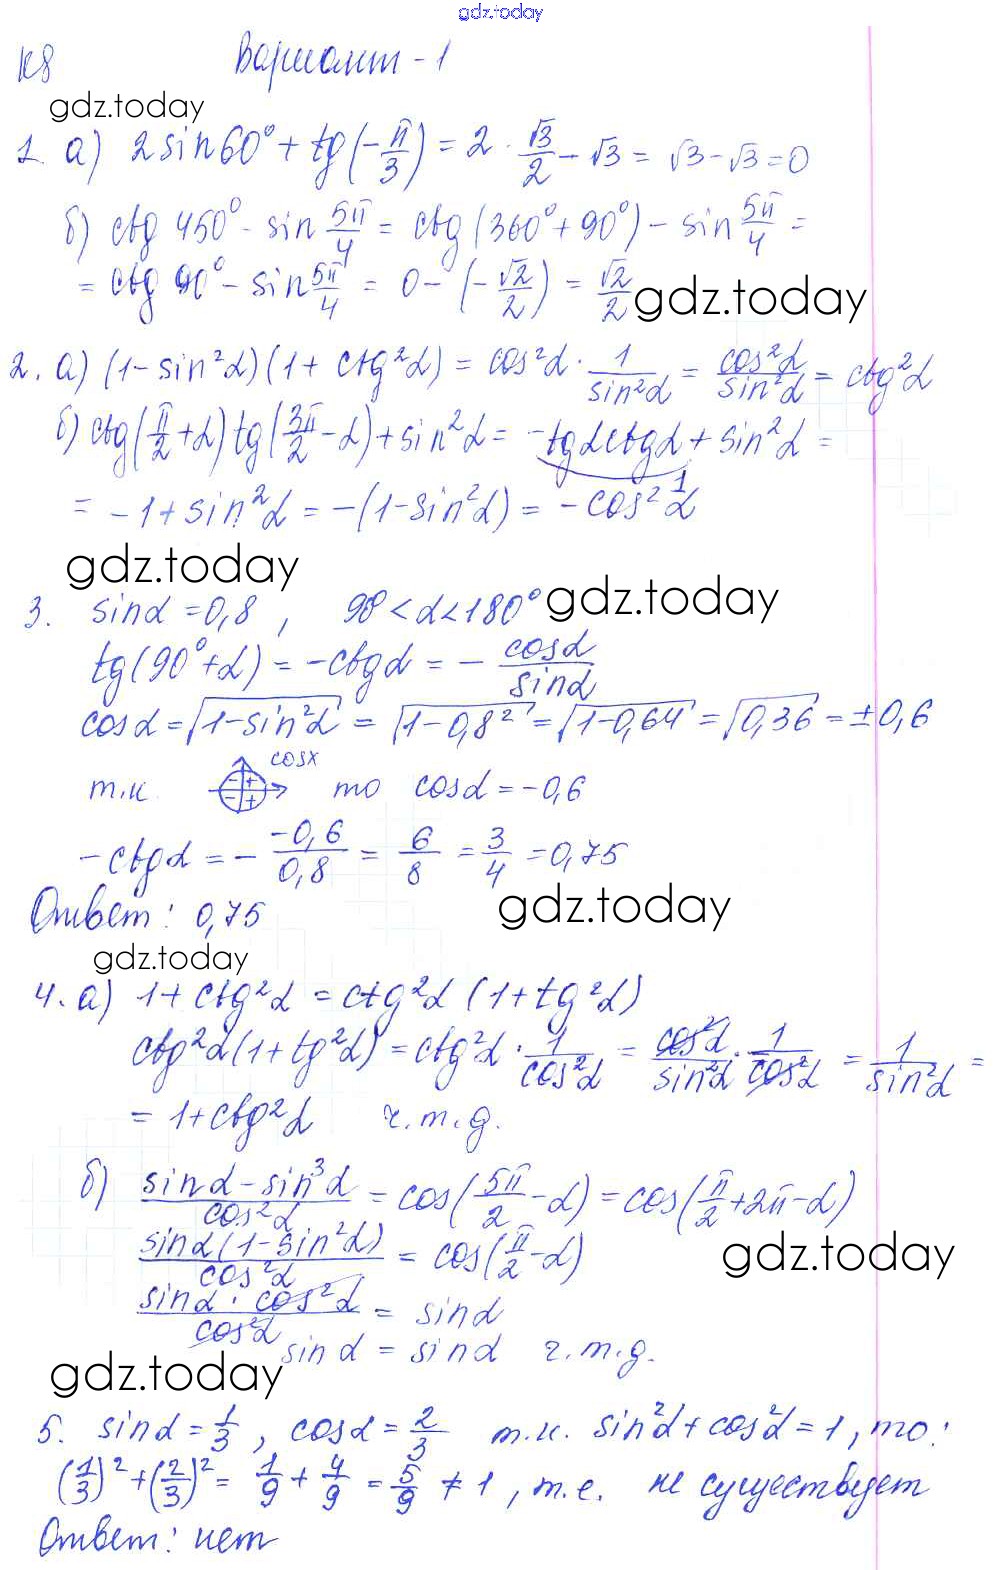 gdz.today
К8 Вариант - 1
gdz.today
1. а) 2 sin60° + tg(-π/3) = 2 · √3/2 - √3 = √3 - √3 = 0
б) ctg 450° - sin 5π/4 = ctg(360° + 90°) - sin 5π/4 =
= ctg 90° - sin 5π/4 = 0 - (-√2/2) = √2/2
gdz.today
2. а) (1 - sin²α)(1 + ctg²α) = cos²α · 1/sin²α = cos²α/sin²α = ctg²α
б) ctg(π/2 + α) tg(3π/2 - α) + sin²α = - tgα ctgα + sin²α =
1
= -1 + sin²α = -(1 - sin²α) = - cos²α
gdz.today
3. sinα = 0,8 , 90° < α < 180°
gdz.today
tg(90° + α) = - ctgα = - cosα/sinα
cosα = √(1 - sin²α) = √(1 - 0,8²) = √(1 - 0,64) = √(0,36) = ±0,6
cosx
т.к. - + - + то cosα = -0,6
- ctgα = - (-0,6)/0,8 = 6/8 = 3/4 = 0,75
Ответ: 0,75
gdz.today
gdz.today
4. а) 1 + ctg²α = ctg²α (1 + tg²α)
ctg²α(1 + tg²α) = ctg²α · 1/cos²α = cos²α/sin²α · 1/cos²α = 1/sin²α =
= 1 + ctg²α ч.т.д.
б) (sinα - sin³α)/cos²α = cos(5π/2 - α) = cos(π/2 + 2π - α)
sinα(1 - sin²α)/cos²α = cos(π/2 - α)
gdz.today
sinα · cos²α/cos²α = sinα
sinα = sinα ч.т.д.
gdz.today
5. sinα = 1/3 , cosα = 2/3 т.к. sin²α + cos²α = 1, то:
(1/3)² + (2/3)² = 1/9 + 4/9 = 5/9 ≠ 1 , т.е. не существует
Ответ: нет